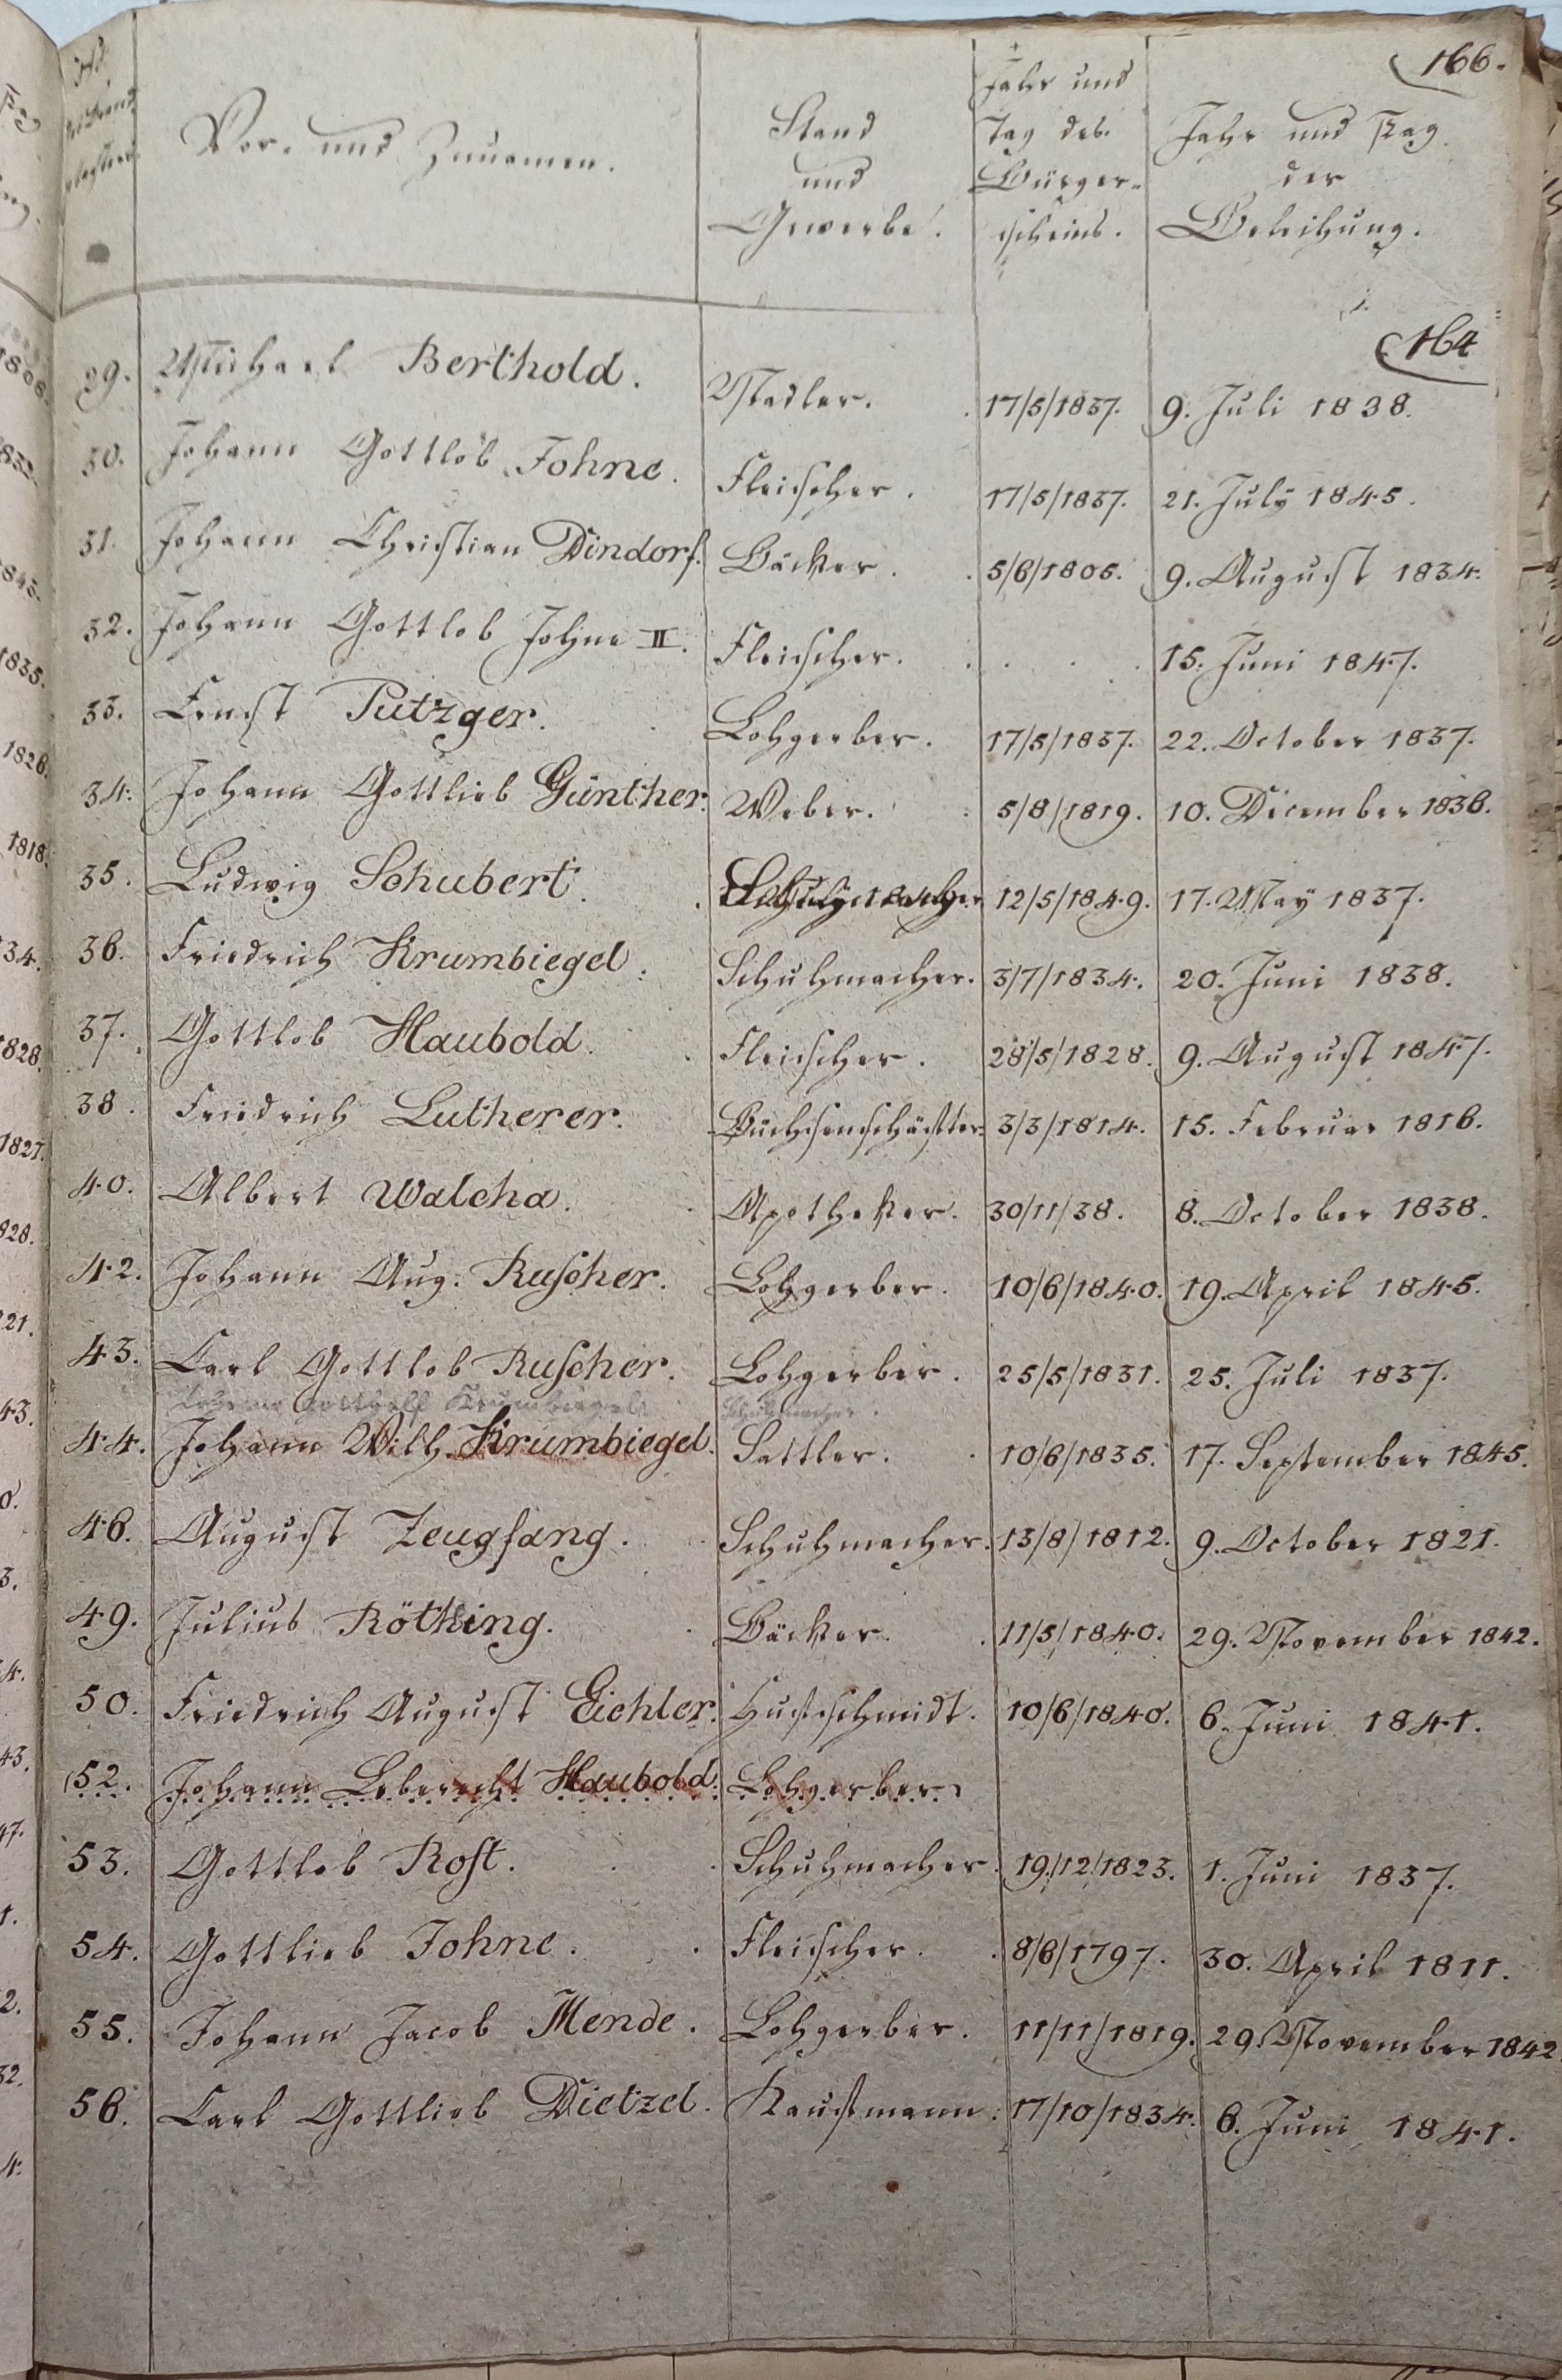 166.
No.
Vor- und Zunamen.
Stand
und
Gewerbe.
Jahr und
Tag des
Bürger-
scheins.
Jahr und Tag
der
Beleihung.
164
29. Michael Berthold. Nadler. 17/5/1837. 9. Juli 1838.
30. Johann Gottlob Johne. Fleischer. 17/5/1837. 21. July 1845.
31. Johann Christian Dindorf. Bäcker. 5/6/1805. 9. August 1834.
32. Johann Gottlob Johne II. Fleischer. 15. Juni 1847.
33. Ernst Putzger. Lohgerber. 17/5/1837. 22. October 1837.
34. Johann Gottlieb Günther. Weber. 5/8/1819. 10. December 1836.
35. Ludwig Schubert. 12/5/1849. 17. May 1837.
36. Friedrich Krumbiegel. Schuhmacher. 3/7/1834. 20. Juni 1838.
37. Gottlob Haubold. Fleischer. 28/5/1828. 9. August 1847.
38. Friedrich Lutherer. Büchsenschäfter. 3/3/1814. 15. Februar 1816.
40. Albert Walcha. Apotheker. 30/11/38. 8. October 1838.
42. Johann Aug. Ruscher. Lohgerber. 10/6/1840. 19. April 1845.
43. Carl Gottlob Ruscher. Lohgerber. 25/5/1831. 25. Juli 1837.
Gotthelf Krumbiegel Schuhmacher.
44. Johann Wilh. Krumbiegel. Sattler. 10/6/1835. 17. September 1845.
46. August Zeugfang. Schuhmacher. 13/8/1812. 9. October 1821.
49. Julius Röthing. Bäcker. 11/5/1840. 29. November 1842.
50. Friedrich August Eichler. Hufschmidt. 10/6/1840. 6. Juni 1841.
52. Johann Leberecht Haubold. Lohgerber.
53. Gottlob Rost. Schuhmacher. 19/12/1823. 1. Juni 1837.
54. Gottlieb Johne. Fleischer. 8/6/1797. 30. April 1811.
55. Johann Jacob Mende. Lohgerber. 11/11/1819. 29. November 1842
56. Carl Gottlieb Dietzel. Kaufmann. 17/10/1834. 6. Juni 1841.